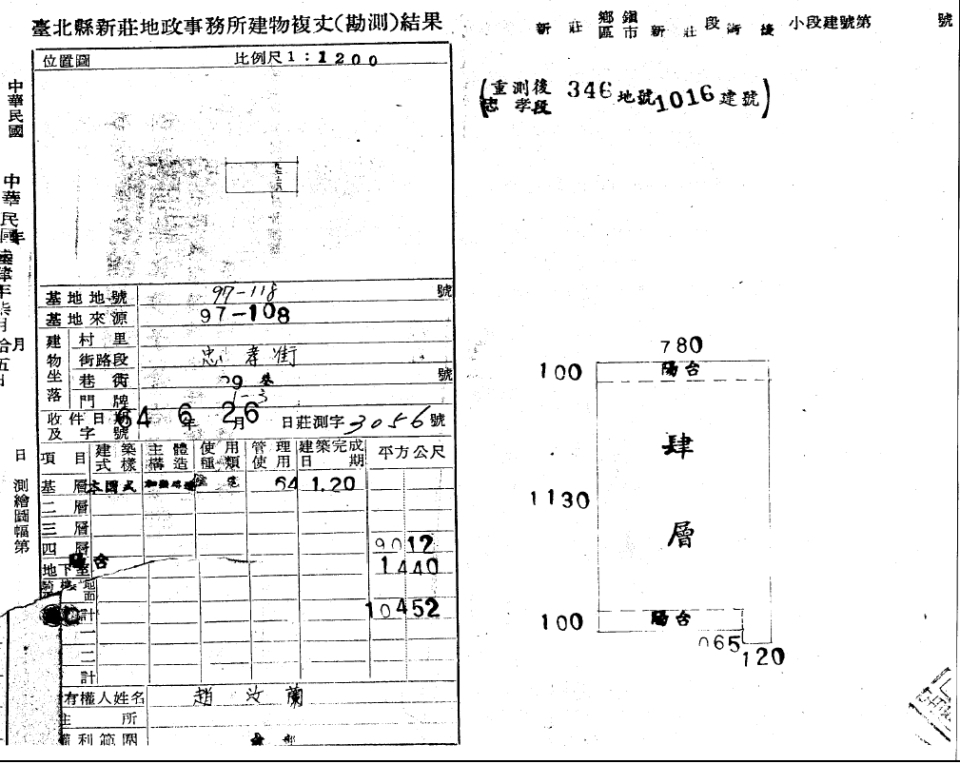 臺北縣新莊地政事務所建物複丈(勘測)結果
新莊 鄉鎮區市 新莊段 小段建號第 號
位置圖 比例尺1:1200
(重測後 忠孝段 346地號1016建號)
中華民國
中華民國 年
月
日
測繪圖幅第
基地地號 97-118 號
基地來源 97-108
建物坐落
村里
街路段 忠孝街
巷衖 29巷 號
門牌 1-3
收件日期及字號 64年6月26日莊測字3056號
項目 建築式樣 主體構造 使用種類 管理使用 建築完成日期 平方公尺
基層 本國式 64 1.20
二層
三層
四層 9012
陽台 1440
地下室
騎樓地面
計 10452
一
二
計
有權人姓名 趙汝蘭
主所
權利範圍
780
100 陽台
肆
1130
層
100 陽台
065
120